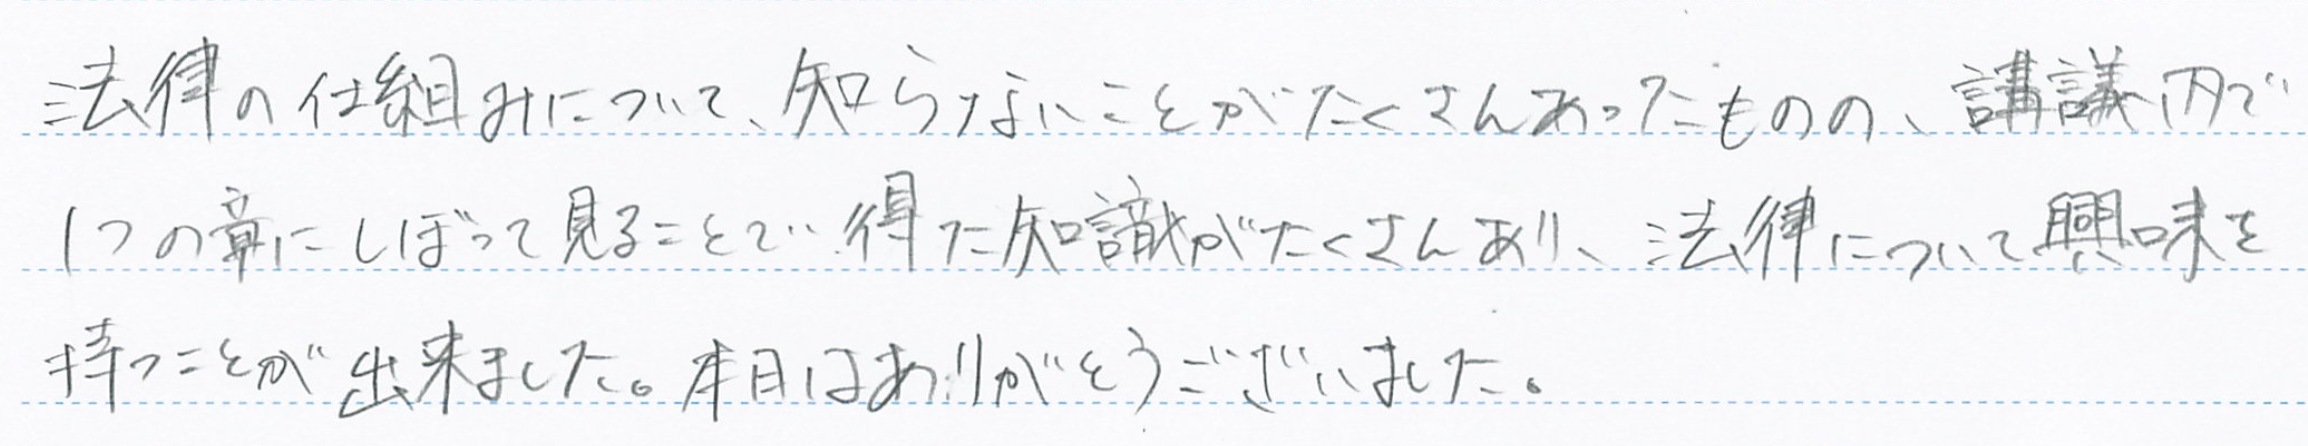 法律の仕組みについて、知らないことがたくさんあったものの、講議内で
1つの章にしぼって見ることで得た知識がたくさんあり、法律について興味を
持つことが出来ました。本日はありがとうございました。